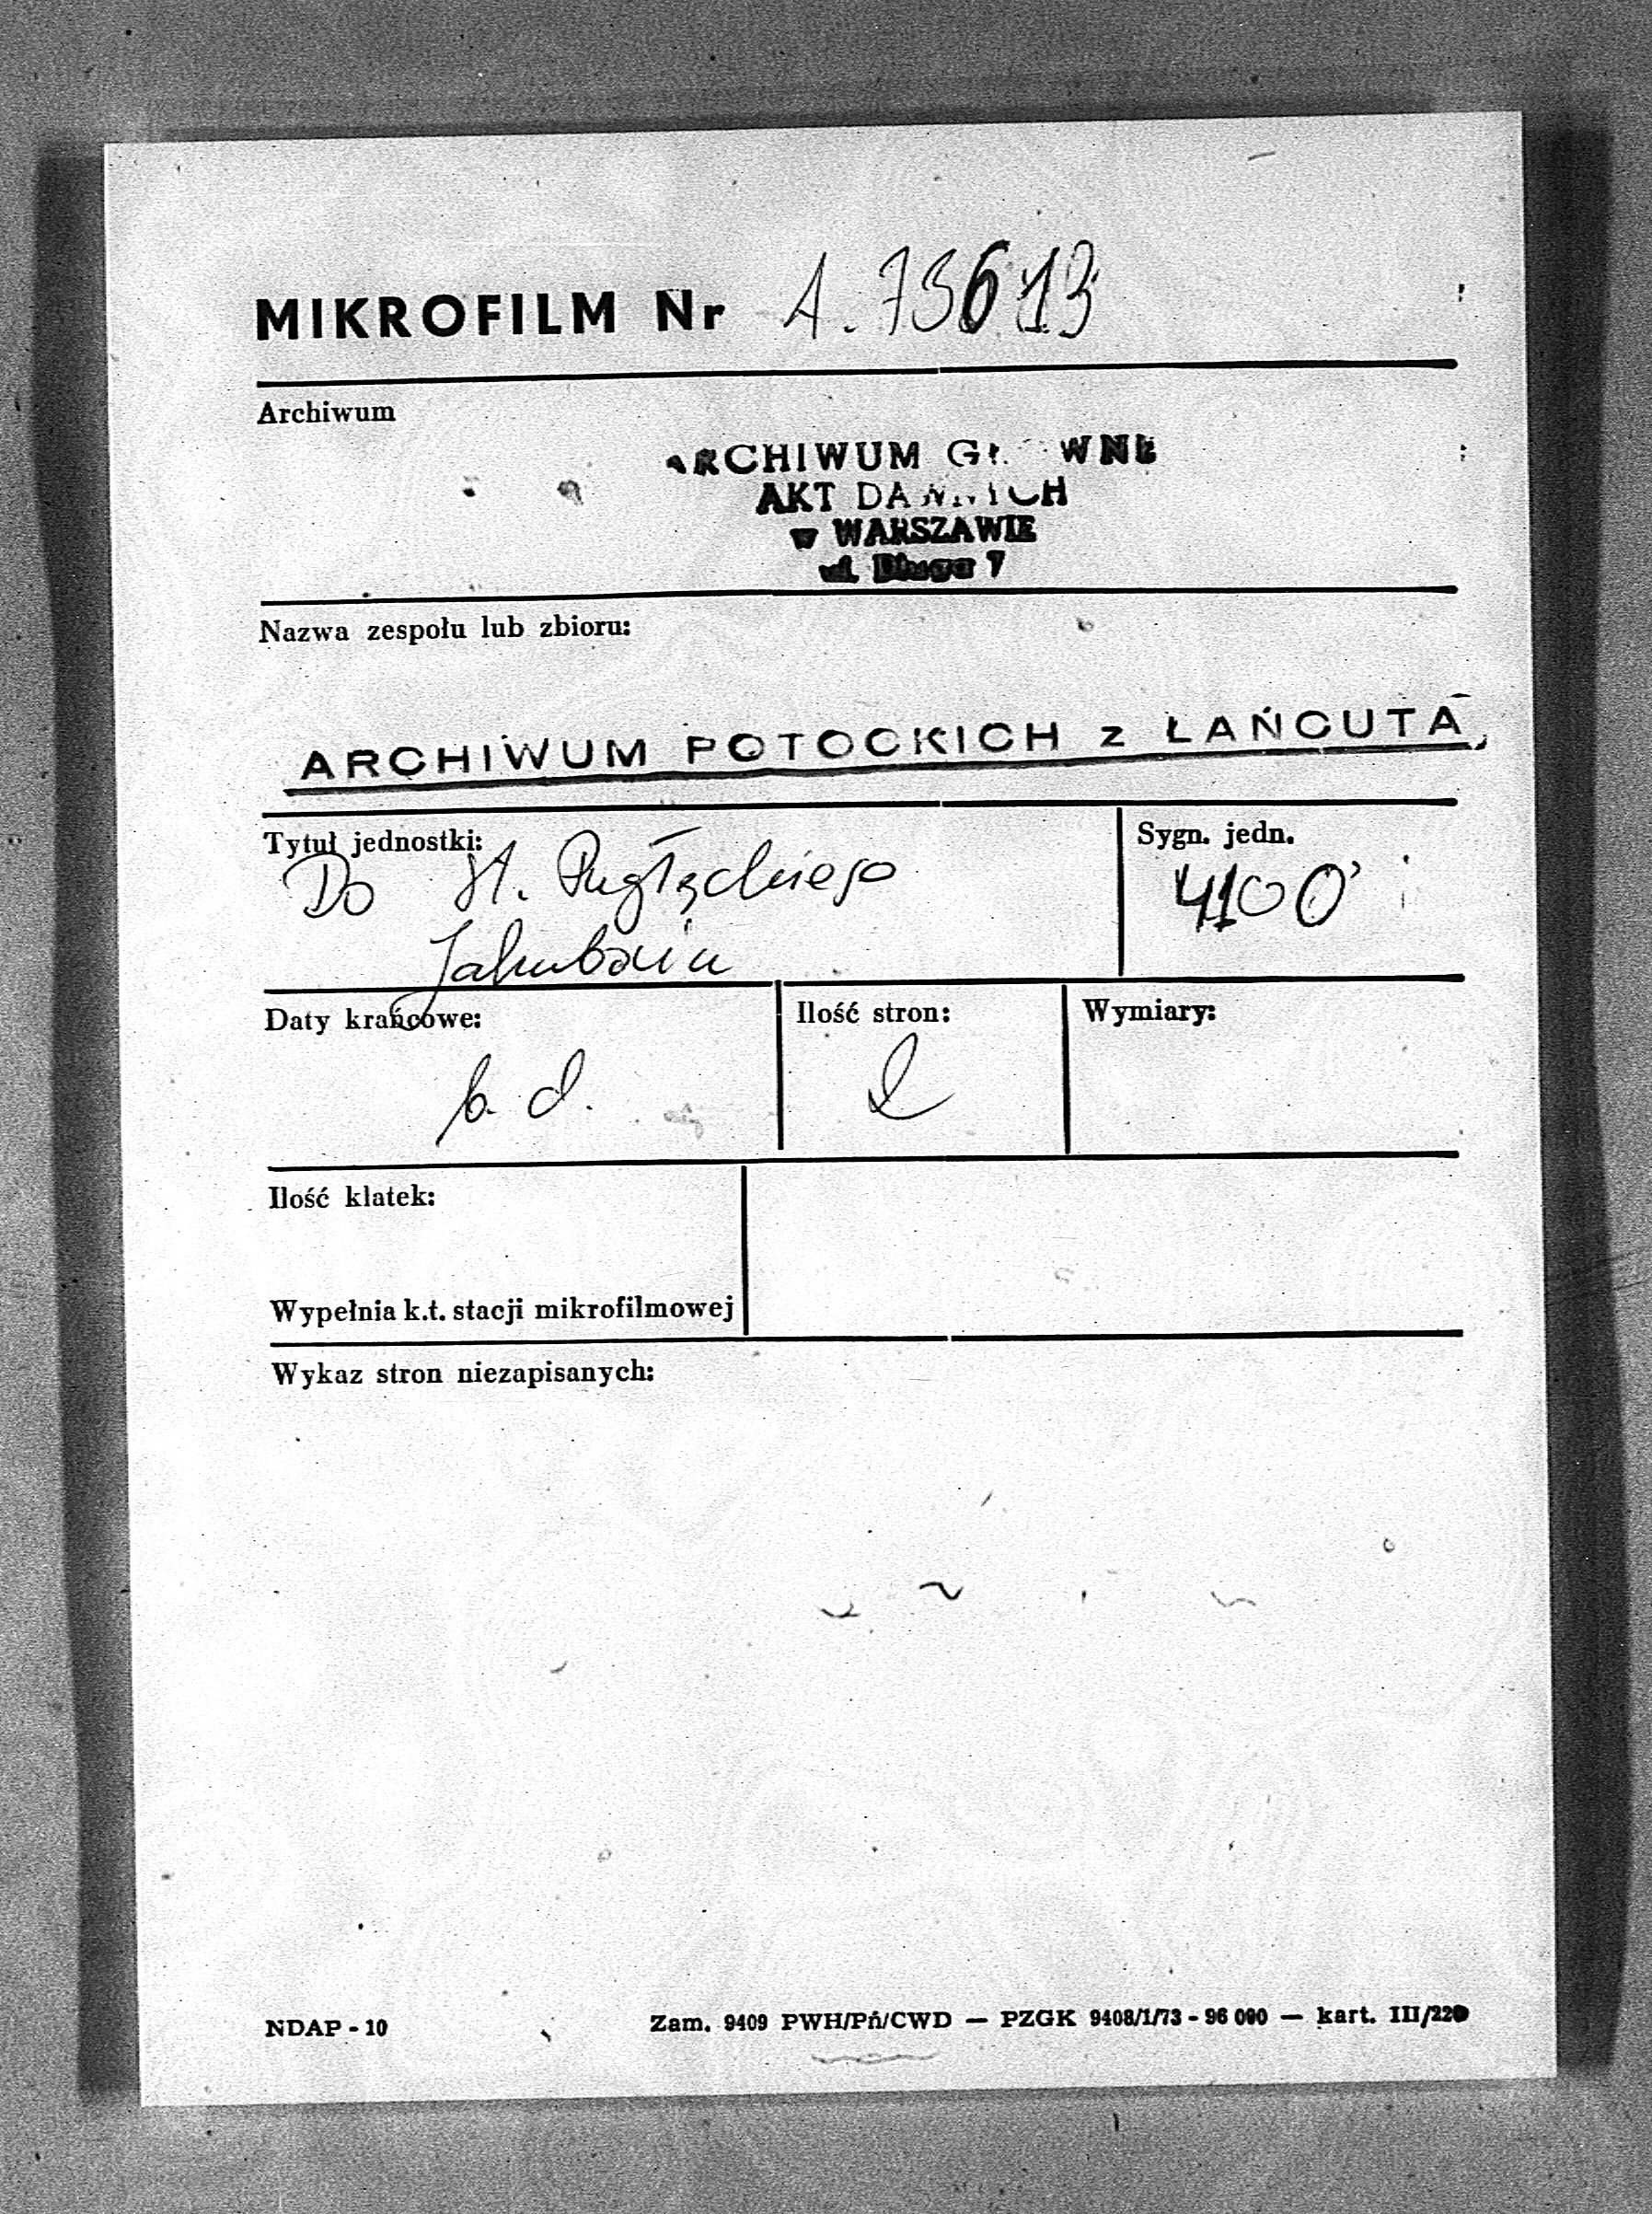 MIKROFILM Nr A. 73613
Archiwum
ARCHIWUM GŁÓWNE
AKT DAWNYCH
w WARSZAWIE
ul. Długa 7
Nazwa zespołu lub zbioru:
ARCHIWUM POTOCKICH z ŁAŃCUTA
Tytuł jednostki:
Do St.
Sygn. jedn.
4100
Daty krańcowe:
b. d.
Ilość stron:
2
Wymiary:
Ilość klatek:
Wypełnia k.t. stacji mikrofilmowej
Wykaz stron niezapisanych:
NDAP - 10
Zam. 9409 PWH/Pń/CWD — PZGK 9408/1/73 - 96 000 — kart. III/220